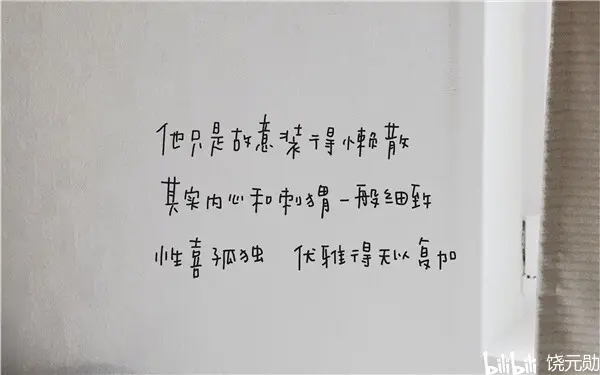 他只是故意装得懒散
其实内心和刺猬一般细致
性喜孤独 优雅得无以复加
bilibili 饶元勋